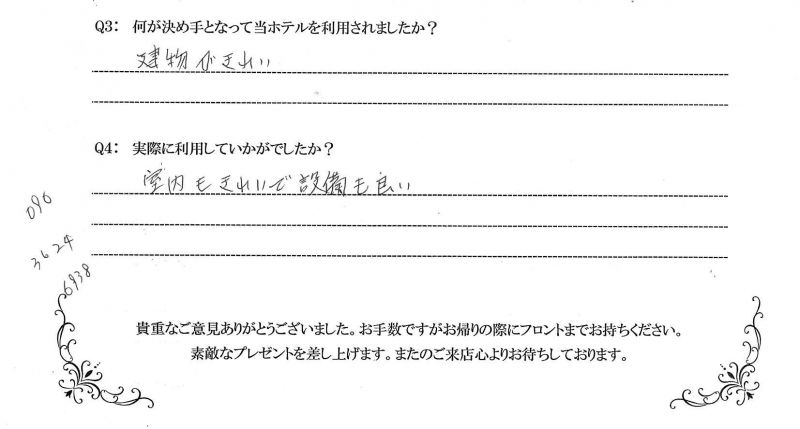 Q3: 何が決め手となって当ホテルを利用されましたか？
建物がきれい
Q4: 実際に利用していかがでしたか？
室内もきれいで設備も良い
090
3624
6938
貴重なご意見ありがとうございました。お手数ですがお帰りの際にフロントまでお持ちください。
素敵なプレゼントを差し上げます。またのご来店心よりお待ちしております。